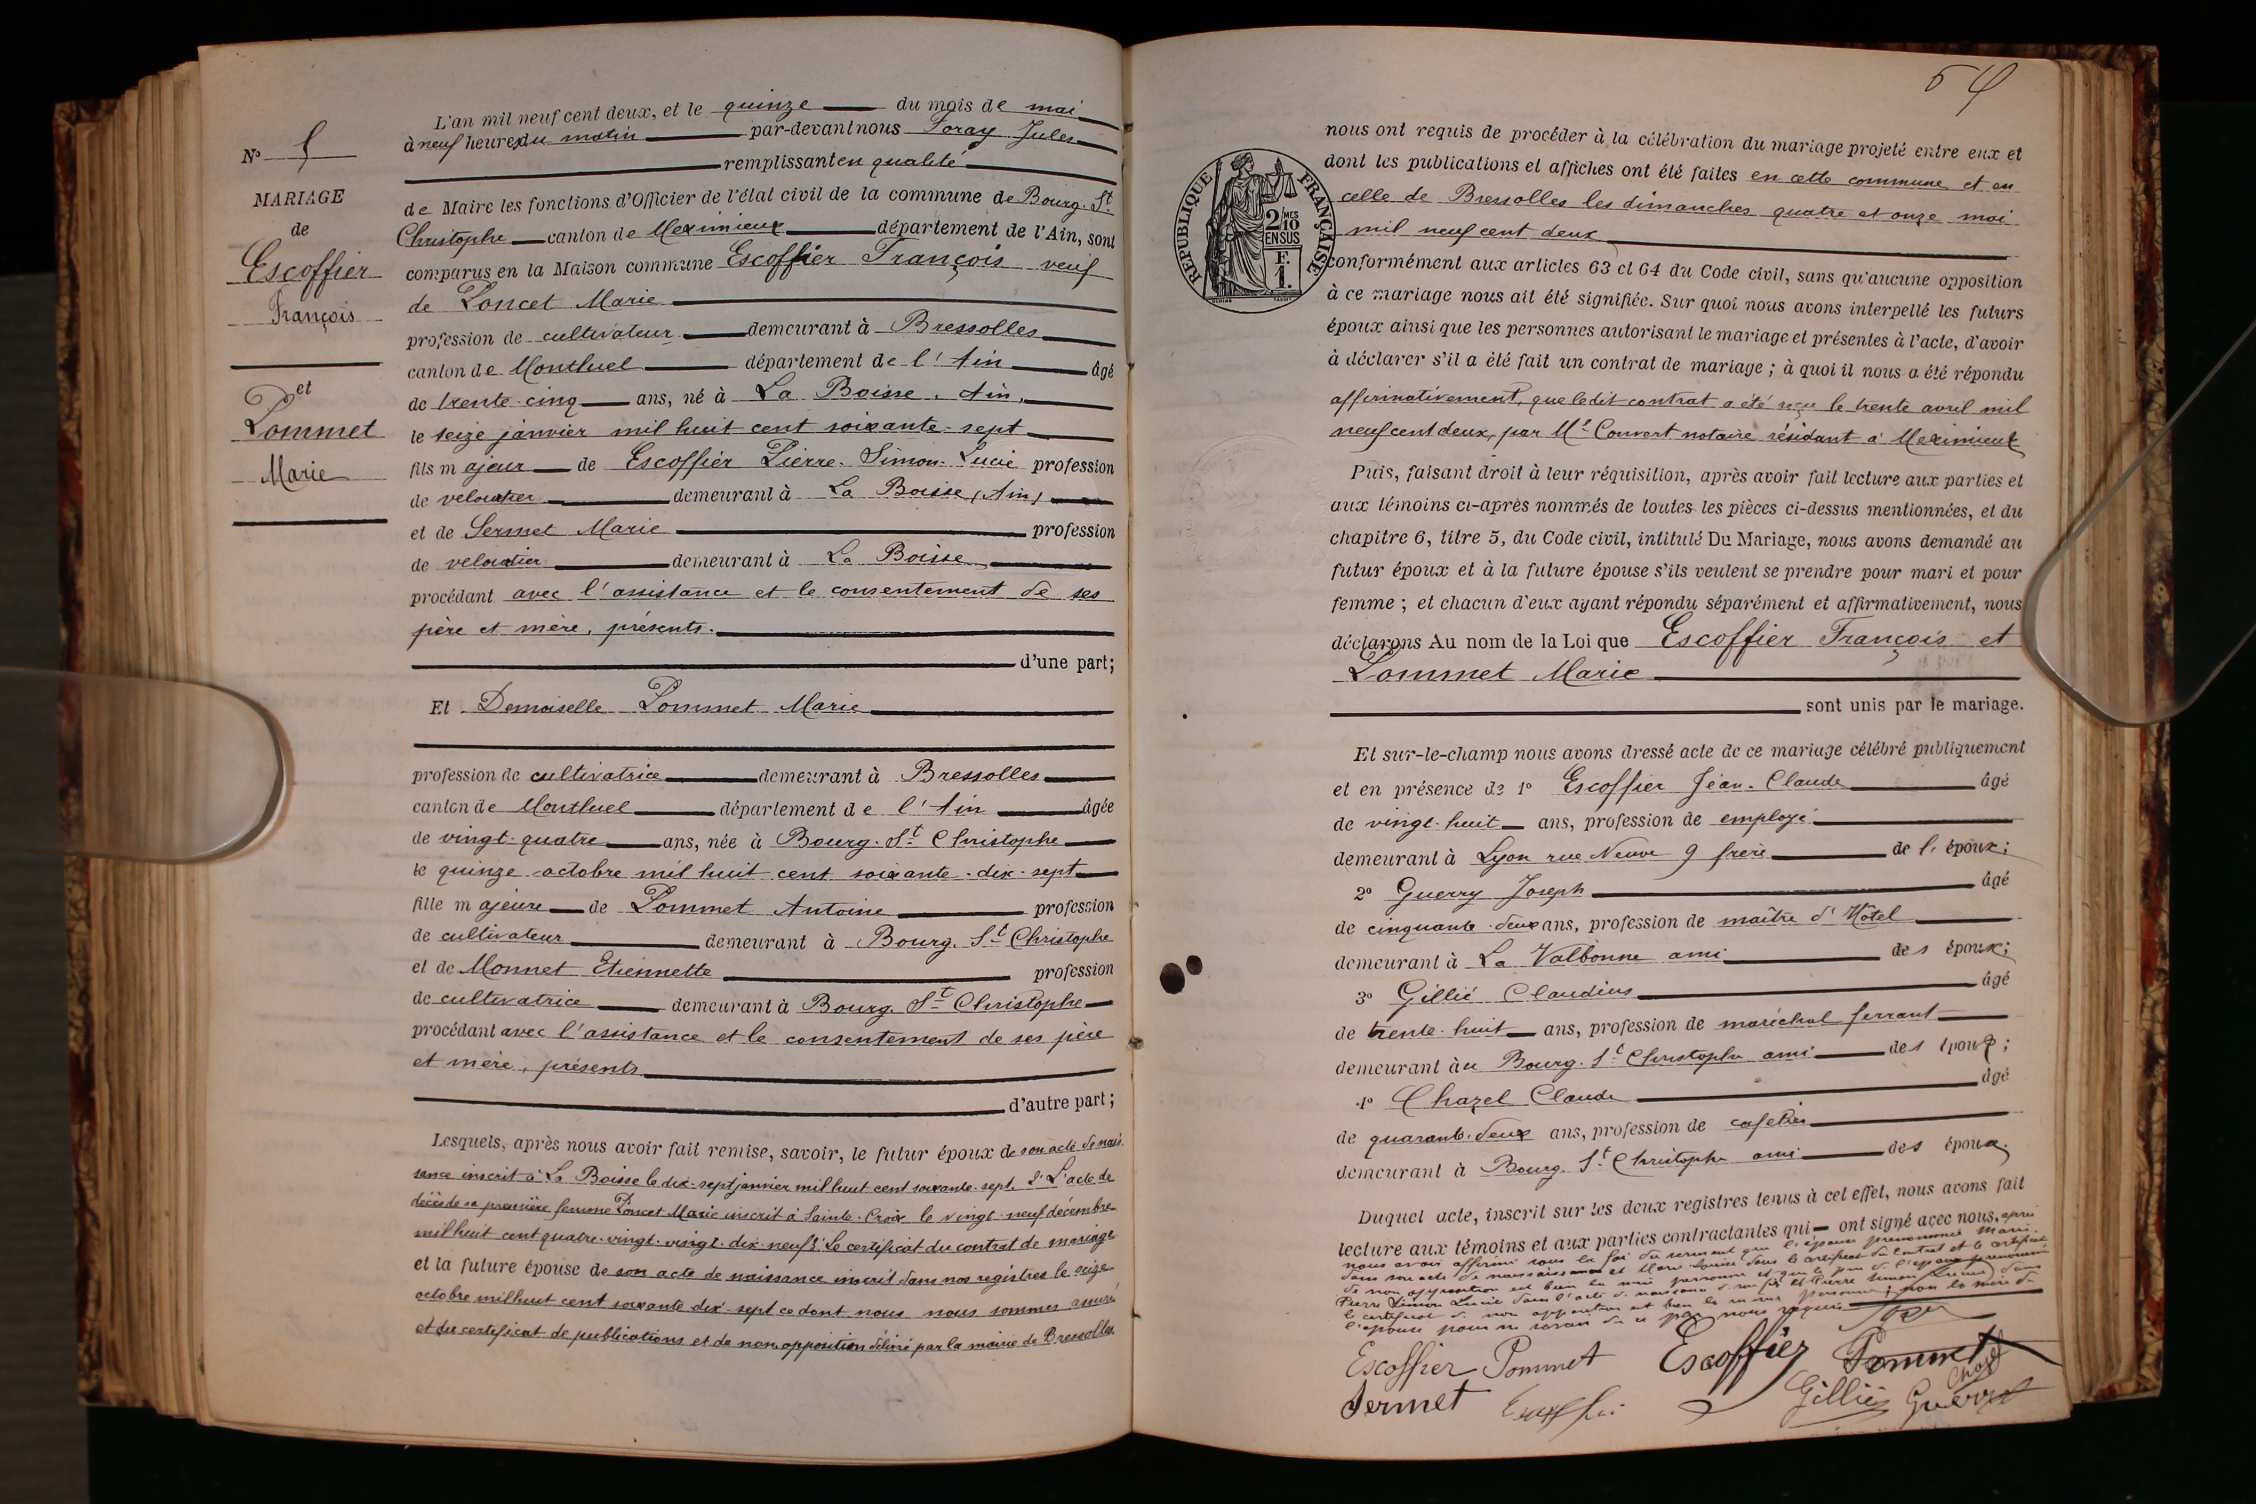 L'an mil neuf cent deux, et le quinze du mois de mai
à neuf heures du matin par-devant nous Foray Jules
remplissant en qualité
de Maire les fonctions d'Officier de l'état civil de la commune de Bourg-St
Christophe canton de Meximieux département de l'Ain, sont
comparus en la Maison commune Escoffier François veuf
de Poncet Marie
profession de cultivateur demeurant à Bressolles
canton de Montluel département de l'Ain âgé
de trente-cinq ans, né à La Boisse, Ain,
le seize janvier mil huit cent soixante-sept
fils majeur de Escoffier Pierre-Simon-Lucie profession
de veloutier demeurant à La Boisse (Ain)
et de Sermet Marie profession
de veloutier demeurant à La Boisse
procédant avec l'assistance et le consentement de ses
père et mère, présents.
d'une part;
Et Demoiselle Pommet Marie
profession de cultivatrice demeurant à Bressolles
canton de Montluel département de l'Ain âgée
de vingt-quatre ans, née à Bourg-St Christophe
le quinze octobre mil huit cent soixante-dix-sept
fille majeure de Pommet Antoine profession
de cultivateur demeurant à Bourg-St Christophe
et de Monnet Etiennette profession
de cultivatrice demeurant à Bourg-St Christophe
procédant avec l'assistance et le consentement de ses père
et mère, présents
d'autre part;
Lesquels, après nous avoir fait remise, savoir, le futur époux de son acte de nais-
sance inscrit à La Boisse le dix-sept janvier mil huit cent soixante-sept. 2° L'acte de
décès de sa première femme Poncet Marie inscrit à Sainte-Croix le vingt-neuf décembre
mil huit cent quatre-vingt-vingt-dix-neuf 3° Le certificat du contrat de mariage
et la future épouse de son acte de naissance inscrit dans nos registres le seize
octobre mil huit cent soixante dix-sept ce dont nous nous sommes assuré
et du certificat de publications et de non opposition délivré par la mairie de Bressolles.
N° 5
MARIAGE
de
Escoffier
François
et
Pommet
Marie
54
RÉPUBLIQUE FRANÇAISE
2/10 MES
EN SUS
F.
1.
nous ont requis de procéder à la célébration du mariage projeté entre eux et
dont les publications et affiches ont été faites en cette commune et en
celle de Bressolles les dimanches quatre et onze mai
mil neuf cent deux
conformément aux articles 63 et 64 du Code civil, sans qu'aucune opposition
à ce mariage nous ait été signifiée. Sur quoi nous avons interpellé les futurs
époux ainsi que les personnes autorisant le mariage et présentes à l'acte, d'avoir
à déclarer s'il a été fait un contrat de mariage; à quoi il nous a été répondu
affirmativement, que ledit contrat a été reçu le trente avril mil
neuf cent deux, par Me Convert notaire résidant à Meximieux
Puis, faisant droit à leur réquisition, après avoir fait lecture aux parties et
aux témoins ci-après nommés de toutes les pièces ci-dessus mentionnées, et du
chapitre 6, titre 5, du Code civil, intitulé Du Mariage, nous avons demandé au
futur époux et à la future épouse s'ils veulent se prendre pour mari et pour
femme; et chacun d'eux ayant répondu séparément et affirmativement, nous
déclarons Au nom de la Loi que Escoffier François et
Pommet Marie
sont unis par le mariage.
Et sur-le-champ nous avons dressé acte de ce mariage célébré publiquement
et en présence de 1° Escoffier Jean-Claude âgé
de vingt-huit ans, profession de employé
demeurant à Lyon rue Neuve 9 frère de l'époux;
2° Guerry Joseph âgé
de cinquante-deux ans, profession de maître d'Hôtel
demeurant à La Valbonne ami des époux;
3° Gillié Claudius âgé
de trente-huit ans, profession de maréchal ferrant
demeurant à u Bourg-St Christophe ami des époux;
4° Chazel Claude âgé
de quarante-deux ans, profession de cafetier
demeurant à Bourg-St Christophe ami des époux.
Duquel acte, inscrit sur les deux registres tenus à cet effet, nous avons fait
lecture aux témoins et aux parties contractantes qui ont signé avec nous, après
nous avoir affirmé sous la foi du serment que l'épouse prénommée Marie
dans son acte de naissance et Marie Louise dans le certificat du contrat et le certificat
de non opposition est bien la même personne et que le père de l'époux prénommé
Pierre Simon Lucie dans l'acte de naissance de son fils et Pierre Simon dans
le certificat de non opposition est bien la même personne; non la mère de
l'épouse pour ne savoir de ce par nous requis
Escoffier Pommet Escoffier Pommet
Sermet Escoffier Gillié Guerry
Chazel